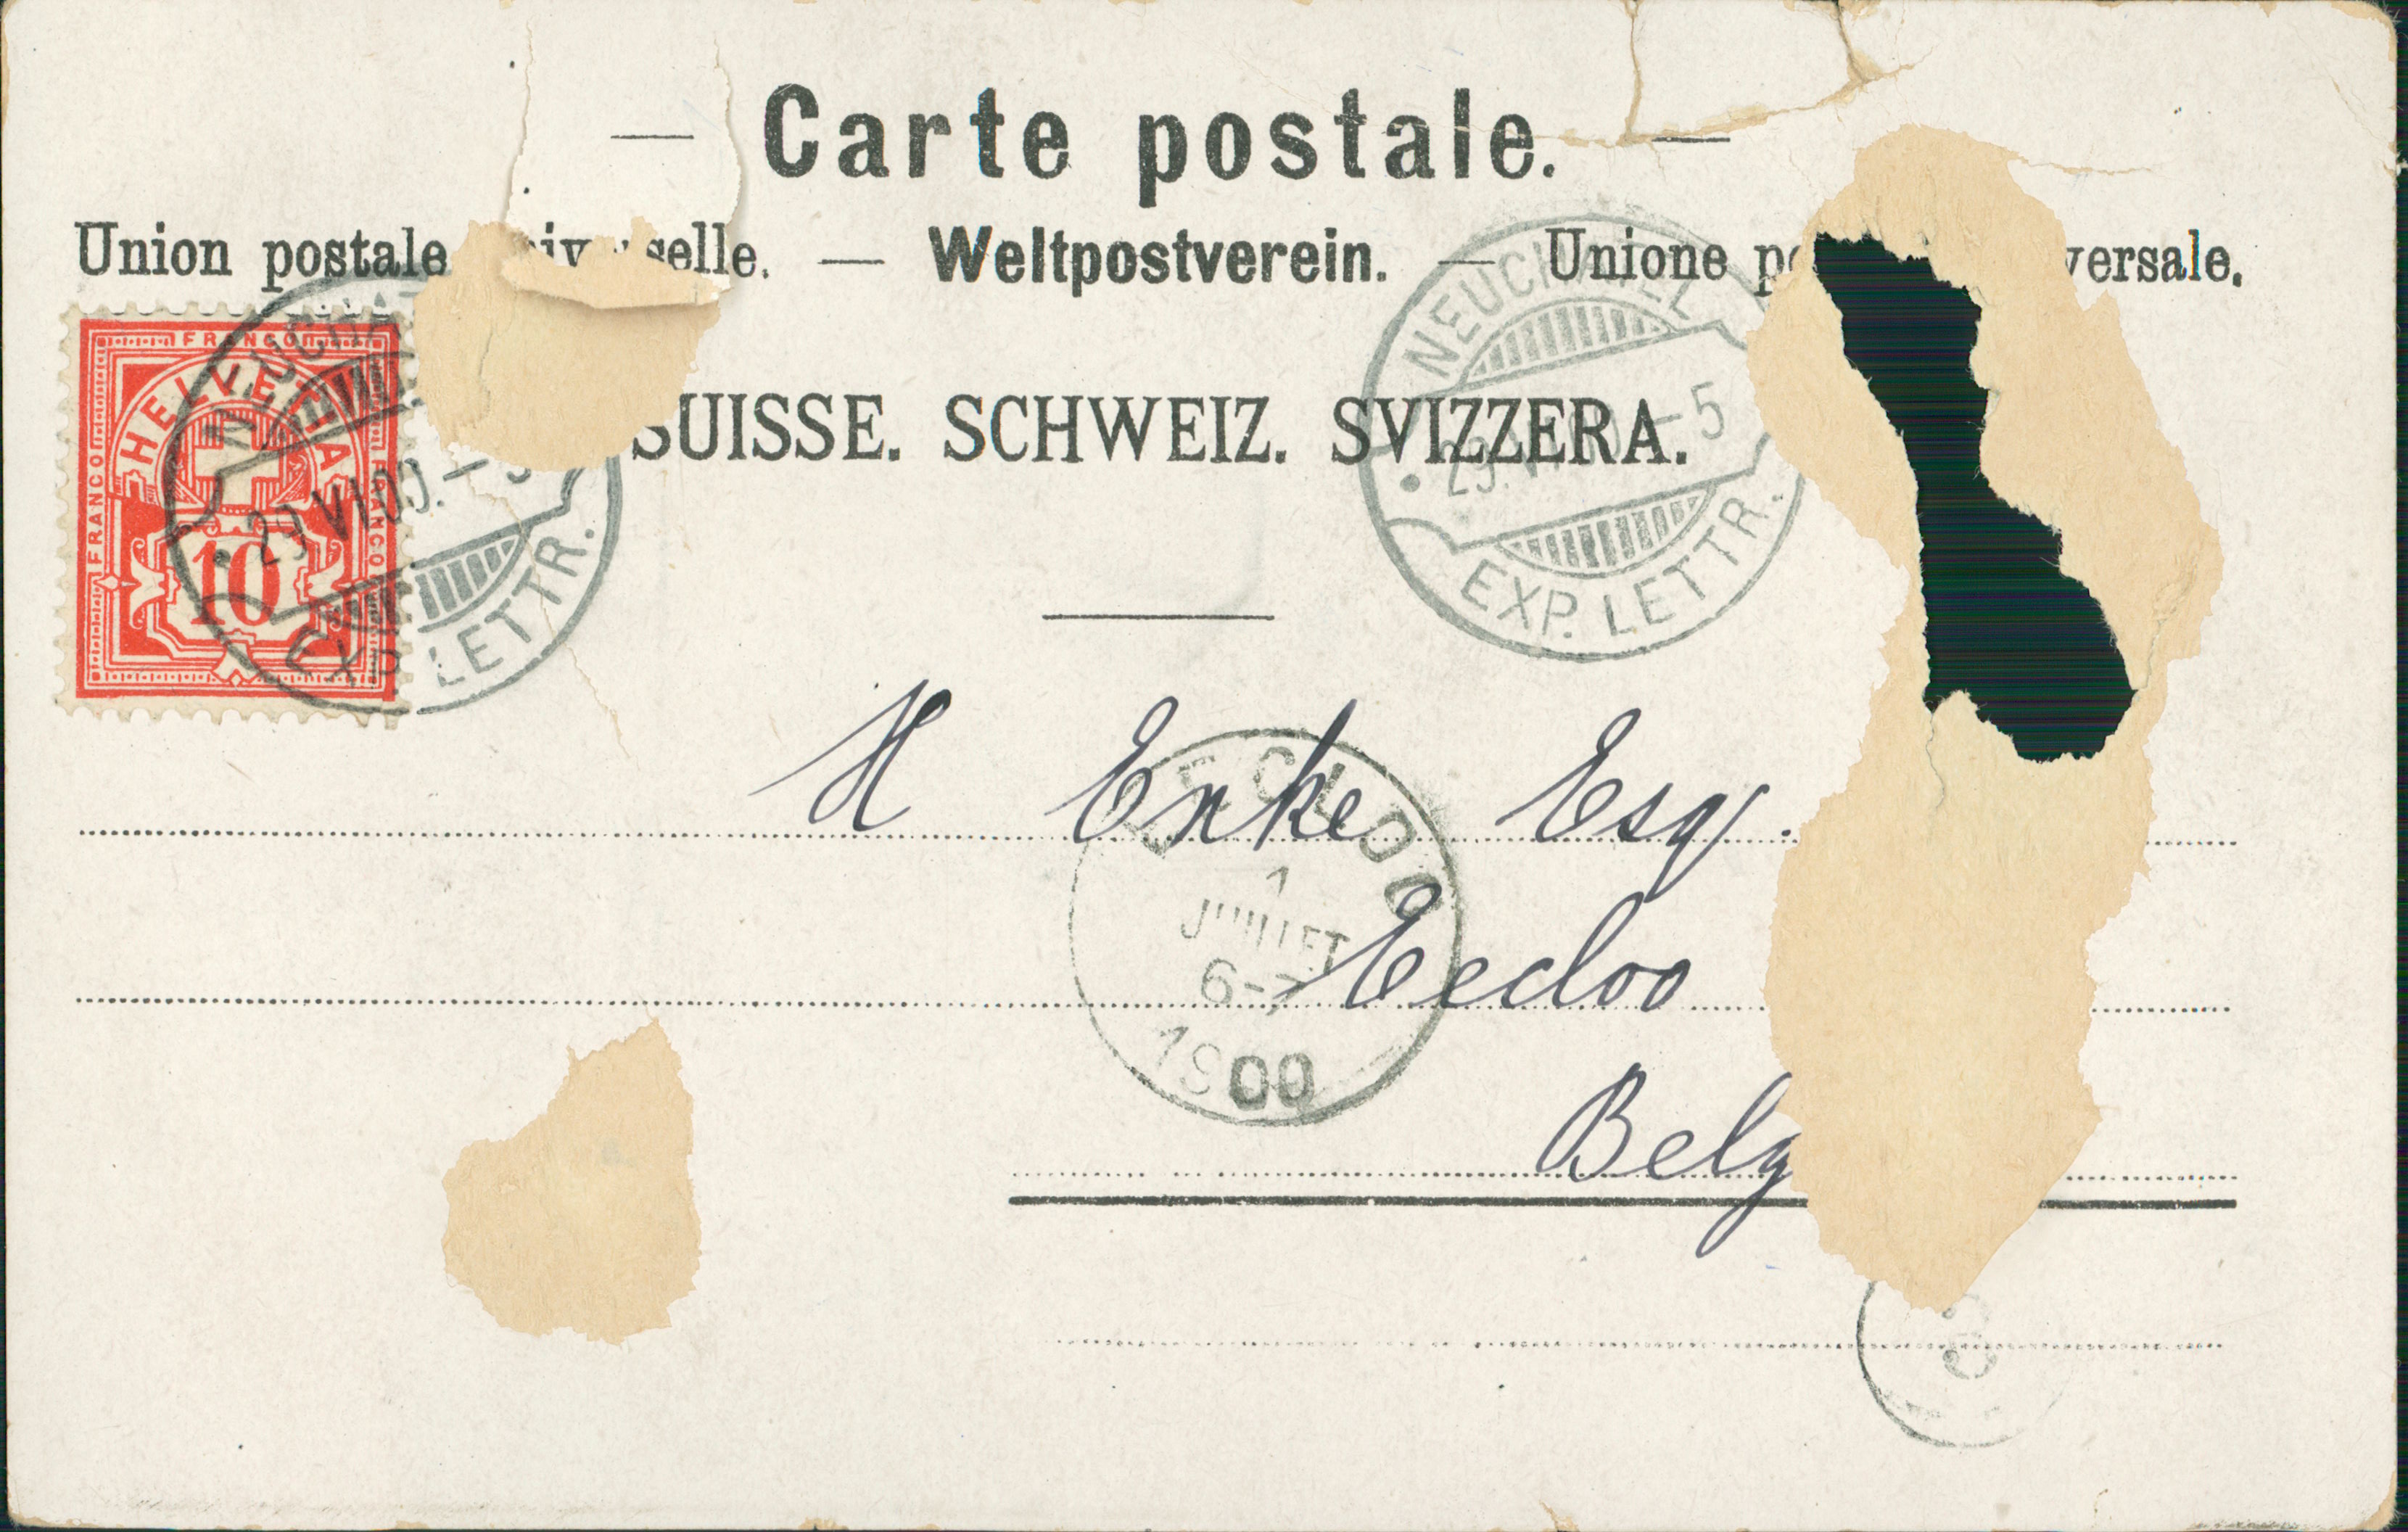 — Carte postale. —
Union postale universelle. — Weltpostverein. — Unione po versale.
SUISSE. SCHWEIZ. SVIZZERA.
FRANCO
HELVETIA
FRANCO
FRANCO
10
NEUCHAT
29 VI 00. –5
EXP. LETTR.
NEUCHATEL
29. VI 00. –5
EXP. LETTR.
H Enke Esq.
EECLOO
1
JUILLET
6-7
1900
Eecloo
Belg